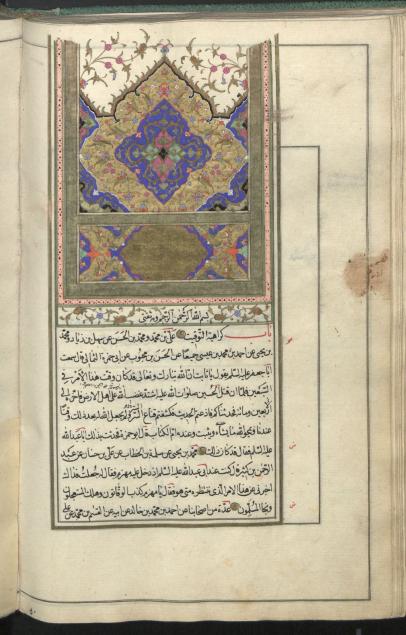 بسم الله الرحمن الرحيم وبه ثقتي
باب كراهية التوقيت علي بن محمد ومحمد بن الحسن عن سهل بن زياد ومحمد
بن يحيى عن احمد بن محمد بن عيسى جميعا عن الحسن بن محبوب عن ابي حمزة الثمالي قال سمعت
ابا جعفر عليه السلم يقول يا ثابت ان الله تبارك وتعالى قد كان وقت هذا الامر في
السبعين فلما ان قتل الحسين صلوات الله عليه اشتد غضب الله على اهل الارض فاخره الى
الاربعين ومائة فحدثناكم فاذعتم الحديث فكشفتم قناع الستر ولم يجعل الله له بعد ذلك وقتا
عندنا ويمحو الله ما يشاء ويثبت وعنده ام الكتاب قال ابو حمزة فحدثت بذلك ابا عبد الله
عليه السلم فقال قد كان ذلك محمد بن يحيى عن سلمة بن الخطاب عن علي بن حسان عن عبد
الرحمن بن كثير قال كنت عند ابي عبد الله عليه السلم اذ دخل عليه مهزم فقال له جعلت فداك
اخبرني عن هذا الامر الذي ننتظره متى هو فقال يا مهزم كذب الوقاتون وهلك المستعجلون
ونجا المسلمون عدة من اصحابنا عن احمد بن محمد بن خالد عن ابيه عن القسم بن محمد عن علي